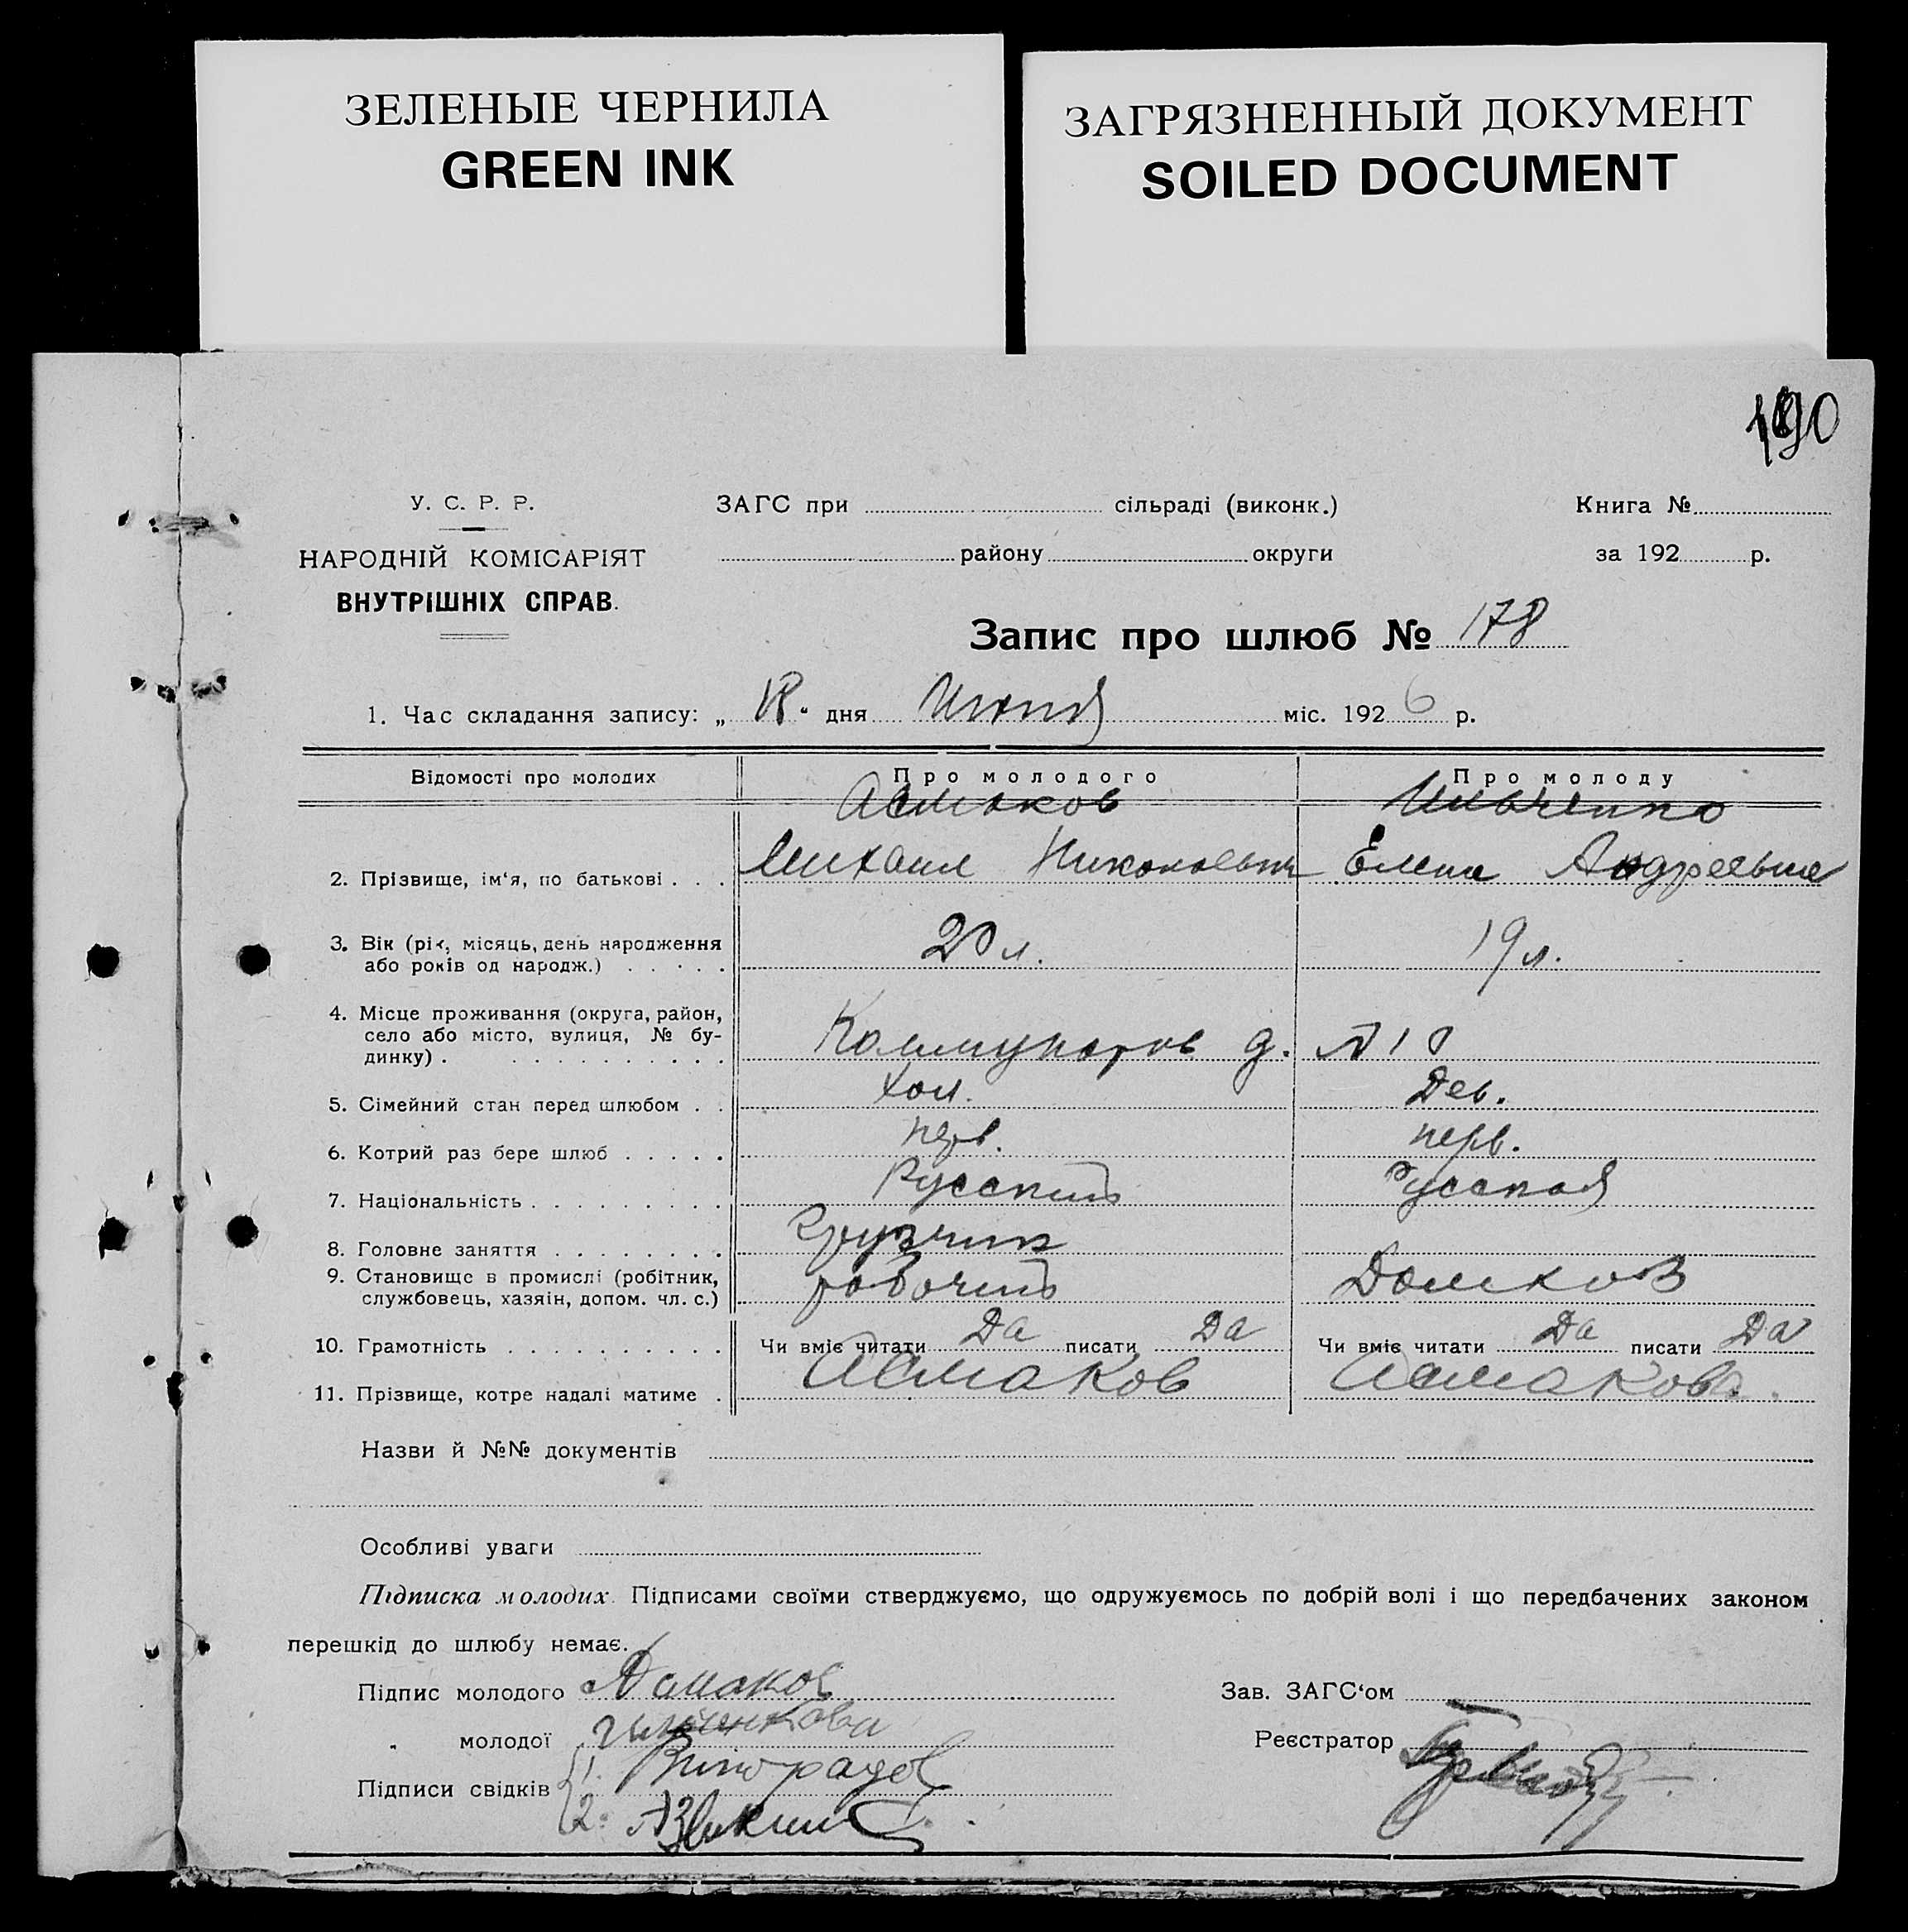 ЗЕЛЕНЫЕ ЧЕРНИЛА
GREEN INK
ЗАГРЯЗНЕННЫЙ ДОКУМЕНТ
SOILED DOCUMENT
190
У. С. Р. Р.
НАРОДНІЙ КОМІСАРІЯТ
ВНУТРІШНІХ СПРАВ.
ЗАГС при сільраді (виконк.)
району округи
Книга №
за 192 р.
Запис про шлюб № 178
1. Час складання запису: „ “ дня міс. 1926 р.
Відомості про молодих Про молодого Про молоду
Асмаков Ильченко
2. Прізвище, ім'я, по батькові . . . Михаил Николаевич Елена Андреевна
3. Вік (рік, місяць, день народження
або років од народж.) . . . . . 20 л. 19 л.
4. Місце проживання (округа, район,
село або місто, вулиця, № бу-
динку) . . . . . . . . . . Коммунаров д. №10
5. Сімейний стан перед шлюбом . . хол. дев.
6. Котрий раз бере шлюб . . . . . перв. перв.
7. Національність . . . . . . . . . Русский Русская
8. Головне заняття . . . . . . . . Грузчик
9. Становище в промислі (робітник,
службовець, хазяін, допом. чл. с.) рабочий Домхоз
10. Грамотність . . . . . . . . . . Чи вміє читати Да писати Да Чи вміє читати Да писати Да
11. Прізвище, котре надалі матиме . Асмаков Асмакова.
Назви й №№ документів
Особливі уваги
Підписка молодих. Підписами своїми стверджуємо, що одружуємось по добрій волі і що передбачених законом
перешкід до шлюбу немає.
Підпис молодого Асмаков
„ молодої
Підписи свідків 1. Виноградов
2.
Зав. ЗАГС‘ом
Реєстратор